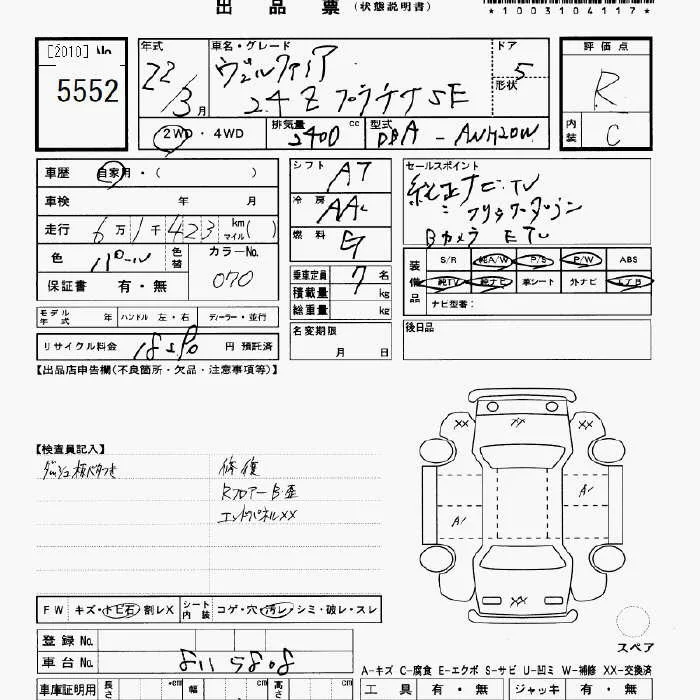 出品票 (状態説明書)
*1003104117*
[2010] No
5552
年式 22/3月
車名・グレード ヴェルファイア
2.4Z プラチナSE
ドア 5
形状
評価点 R
内装 C
2WD・4WD 排気量 2400 cc 型式 DBA - ANH20W
車歴 自家用・( )
車検 年 月
走行 6万1千423 km マイル( )
色 パール 色替 カラーNo. 070
保証書 有・無
シフト A7
冷房 AAC
燃料 G
乗車定員 7 名
積載量 kg
総重量 kg
名変期限 月 日
セールスポイント
純正ナビTV
フリップダウン
Bカメラ ETC
装備品 S/R 純A/W P/S P/W ABS
純TV 純ナビ 革シート 外ナビ エアB
ナビ型番:
後日品
モデル年式 年 ハンドル 左・右 ディーラー・並行
リサイクル料金 18590 円 預託済
【出品店申告欄(不良箇所・欠品・注意事項等)】
【検査員記入】
修復
Rフロアー B・歪
エンドパネルXX
XX XX XX
A1
A1
XX
スペア
FW キズ・トビ石・割レX シート内装 コゲ・穴・汚レ・シミ・破レ・スレ
登録 No.
車台 No. 8115808
A-キズ C-腐食 E-エクボ S-サビ U-凹ミ W-補修 XX-交換済
車庫証明用 長さ cm 幅 cm 高さ cm
工具 有・無 ジャッキ 有・無